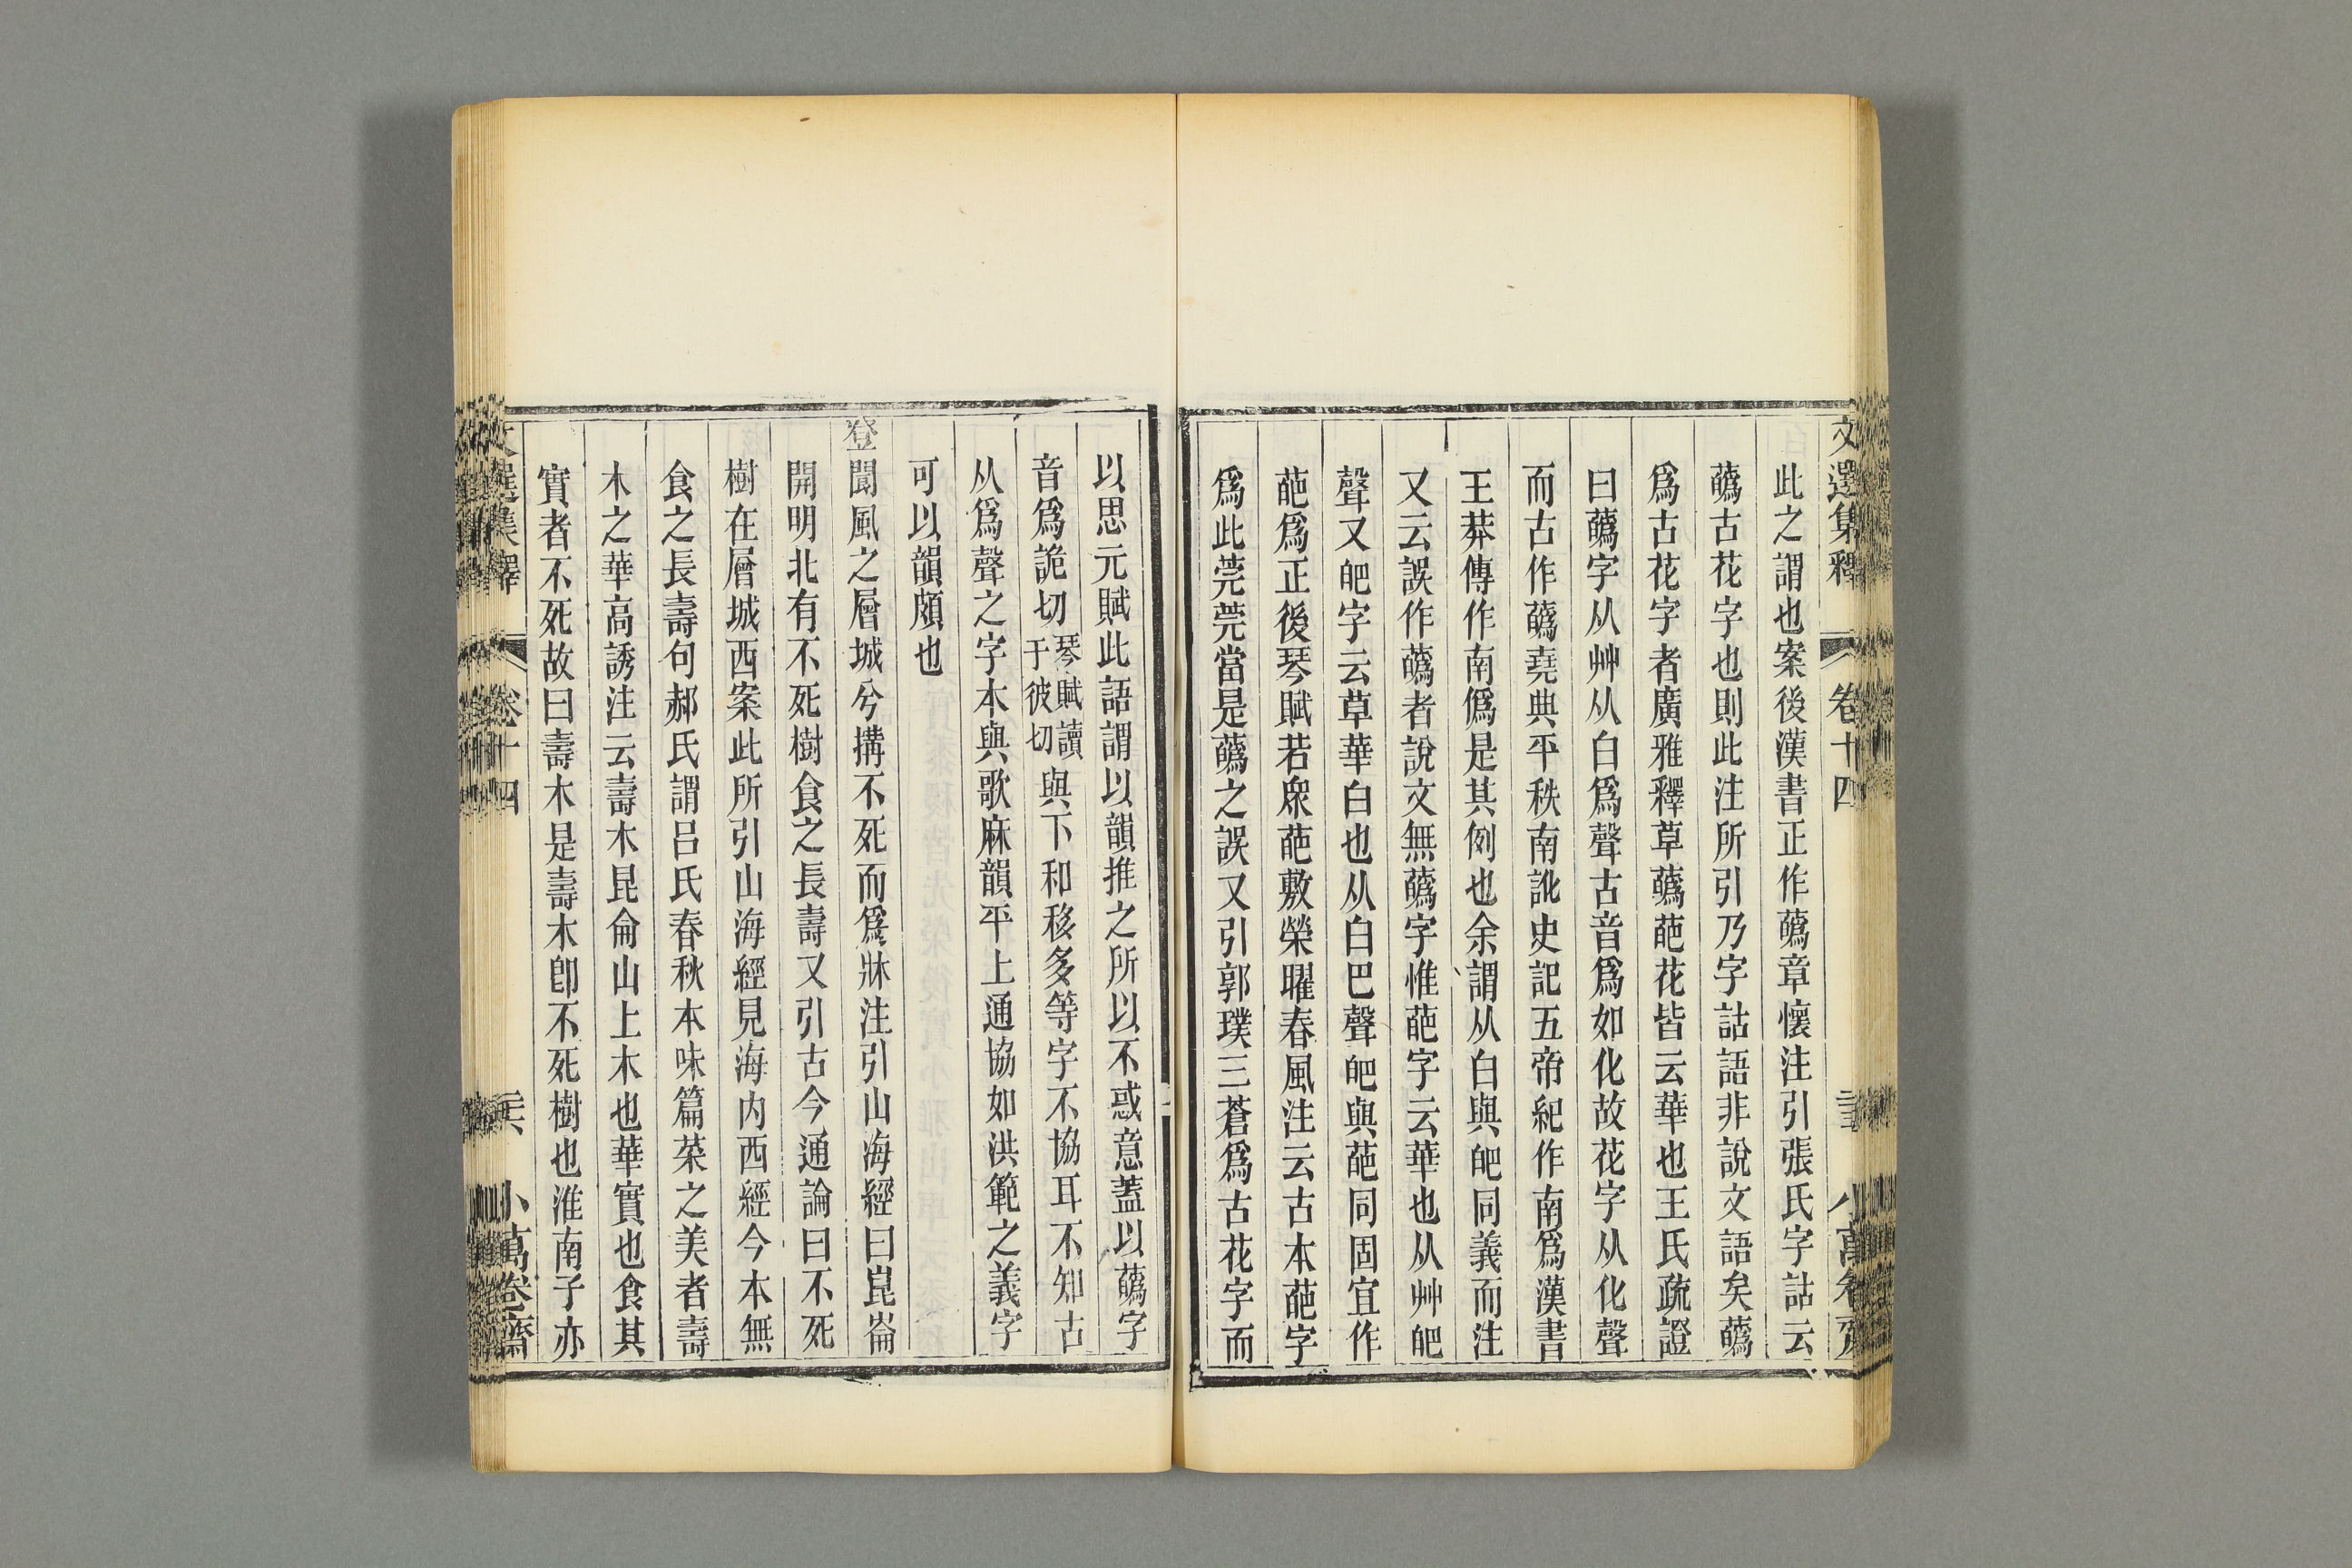 文選集釋 卷十四 小萬卷齋
此之謂也案後漢書正作蘤章懷注引張氏字詁云
蘤古花字也則此注所引乃字詁語非說文語矣蘤
爲古花字者廣雅釋草蘤葩花皆云華也王氏疏證
曰蘤字从艸从白爲聲古音爲如化故花字从化聲
而古作蘤堯典平秩南訛史記五帝紀作南爲漢書
王莽傳作南僞是其例也余謂从白與皅同義而注
又云誤作蘤者說文無蘤字惟葩字云華也从艸皅
聲又皅字云草華白也从白巴聲皅與葩同固宜作
葩爲正後琴賦若衆葩敷榮曜春風注云古本葩字
爲此莞莞當是蘤之誤又引郭璞三蒼爲古花字而
以思元賦此語謂以韻推之所以不惑意蓋以蘤字
音爲詭切琴賦讀于彼切與下和移多等字不協耳不知古
从爲聲之字本與歌麻韻平上通協如洪範之義字
可以韻頗也
登閬風之層城兮搆不死而爲牀注引山海經曰崑崙
開明北有不死樹食之長壽又引古今通論曰不死
樹在層城西案此所引山海經見海內西經今本無
食之長壽句郝氏謂呂氏春秋本味篇菜之美者壽
木之華高誘注云壽木昆侖山上木也華實也食其
實者不死故曰壽木是壽木卽不死樹也淮南子亦
文選集釋 卷十四 小萬卷齋